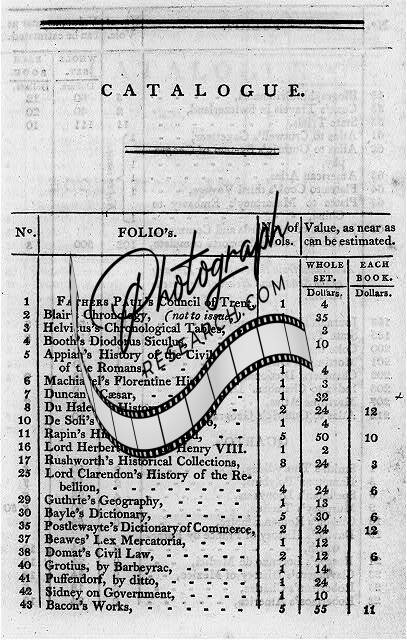 CATALOGUE.
Nº. FOLIO's. Nº. of Vols. Value, as near as can be estimated.
WHOLE SET. EACH BOOK.
Dollars. Dollars.
1 FATHERS PAUL's Council of Trent, 1 4
2 Blair's Chronology, (not to issue,) 35
3 Helvicus's Chronological Tables, 1 3
4 Booth's Diodorus Siculus, 10
5 Appian's History of the Civil
of the Romans, 1 4
6 Machiavel's Florentine His 1 3
7 Duncan's Cæsar, 1 32
8 Du Halde's Histo 2 24 12
10 De Soli's 1 4
11 Rapin's Hi 5 50 10
16 Lord Herbert Henry VIII. 1 2
17 Rushworth's Historical Collections, 8 24 3
25 Lord Clarendon's History of the Re-
bellion, 4 24 6
29 Guthrie's Geography, 1 13
30 Bayle's Dictionary, 5 30 6
35 Postlewayte's Dictionary of Commerce, 2 24 12
37 Beawes' Lex Mercatoria, 1 12
38 Domat's Civil Law, 2 12 6
40 Grotius, by Barbeyrac, 1 14
41 Puffendorf, by ditto, 1 24
42 Sidney on Government, 1 10
43 Bacon's Works, 5 55 11
Photograph
RESEARCH.COM